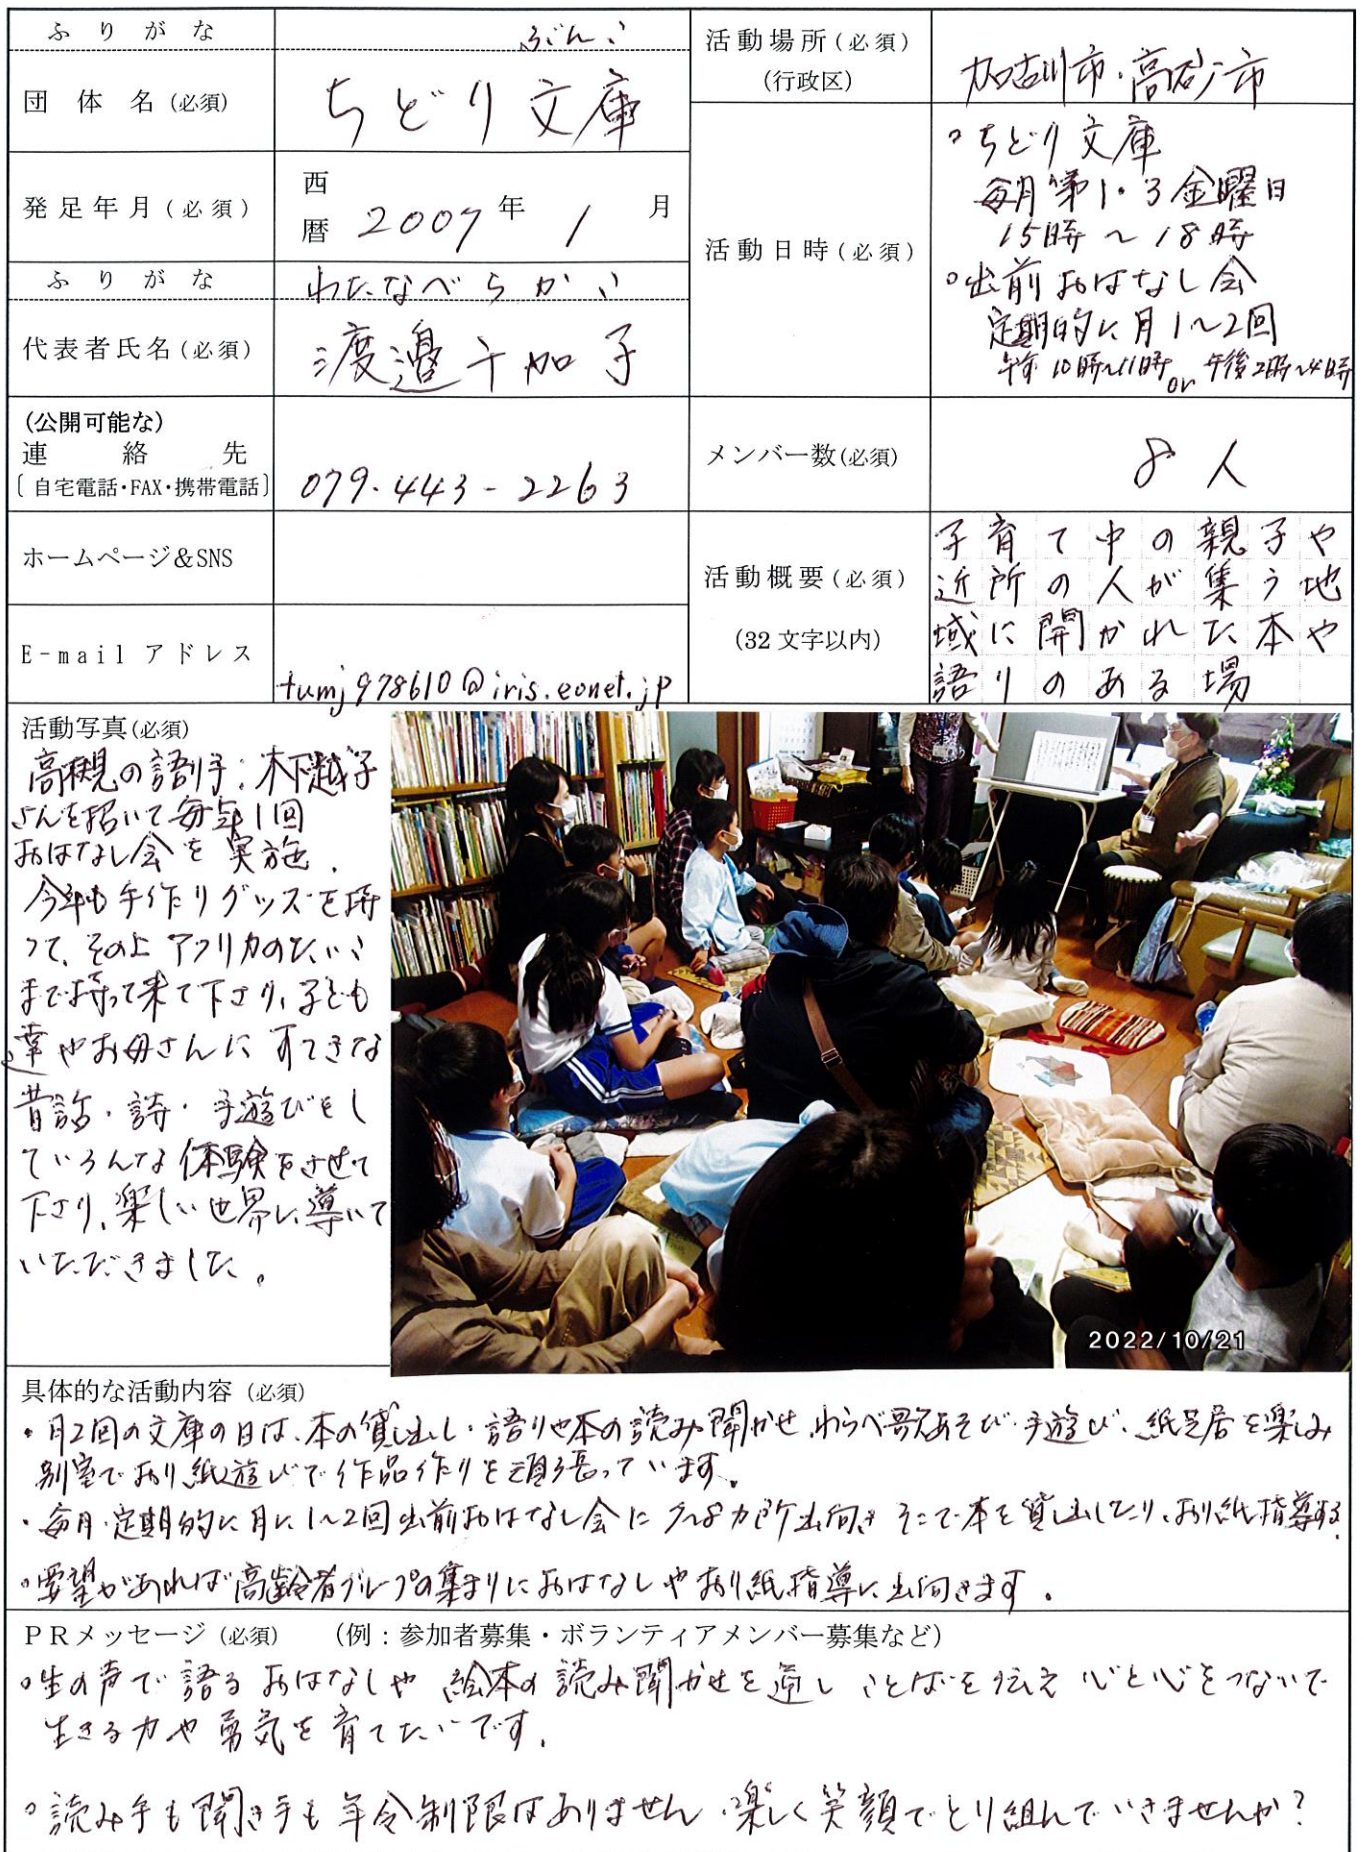 ふりがな
ぶんこ
団体名(必須)
ちどり文庫
発足年月(必須)
西暦 2007年 1月
ふりがな
わたなべちかこ
代表者氏名(必須)
渡邉千加子
(公開可能な)
連絡先
〔自宅電話・FAX・携帯電話〕
079-443-2263
ホームページ&SNS
E-mail アドレス
tumj978610@iris.eonet.jp
活動場所(必須)
(行政区)
加古川市・高砂市
活動日時(必須)
○ちどり文庫
毎月第1・3金曜日
15時~18時
○出前おはなし会
定期的に月1~2回
午前10時~11時 or 午後2時~4時
メンバー数(必須)
8人
活動概要(必須)
(32文字以内)
子育て中の親子や
近所の人が集う地
域に開かれた本や
語りのある場
活動写真(必須)
高槻の語り手;木下越子
さんを招いて毎年1回
おはなし会を実施.
今年も手作りグッズを持
って、その上アフリカのたいこ
まで持って来て下さり、子ども
達やお母さんにすてきな
昔話・詩・手遊びをし
ていろんな体験をさせて
下さり、楽しい世界に導いて
いただきました。
2022/10/21
具体的な活動内容(必須)
・月2回の文庫の日は、本の貸し出し・語りや本の読み聞かせ、わらべ歌あそび・手遊び、紙芝居を楽しみ
別室でおり紙遊びで作品作りを頑張っています。
・毎月、定期的に月に1~2回出前おはなし会に7~8カ所出向き そこで本を貸し出したり、おり紙指導する.
・要望があれば高齢者グループの集まりにおはなしやおり紙指導に出向きます.
PRメッセージ(必須) (例:参加者募集・ボランティアメンバー募集など)
○生の声で語るおはなしや絵本の読み聞かせを通し ことばを伝え 心と心をつないで
生きる力や勇気を育てたいです.
○読み手も聞き手も年令制限はありません.楽しく笑顔でとり組んでいきませんか?